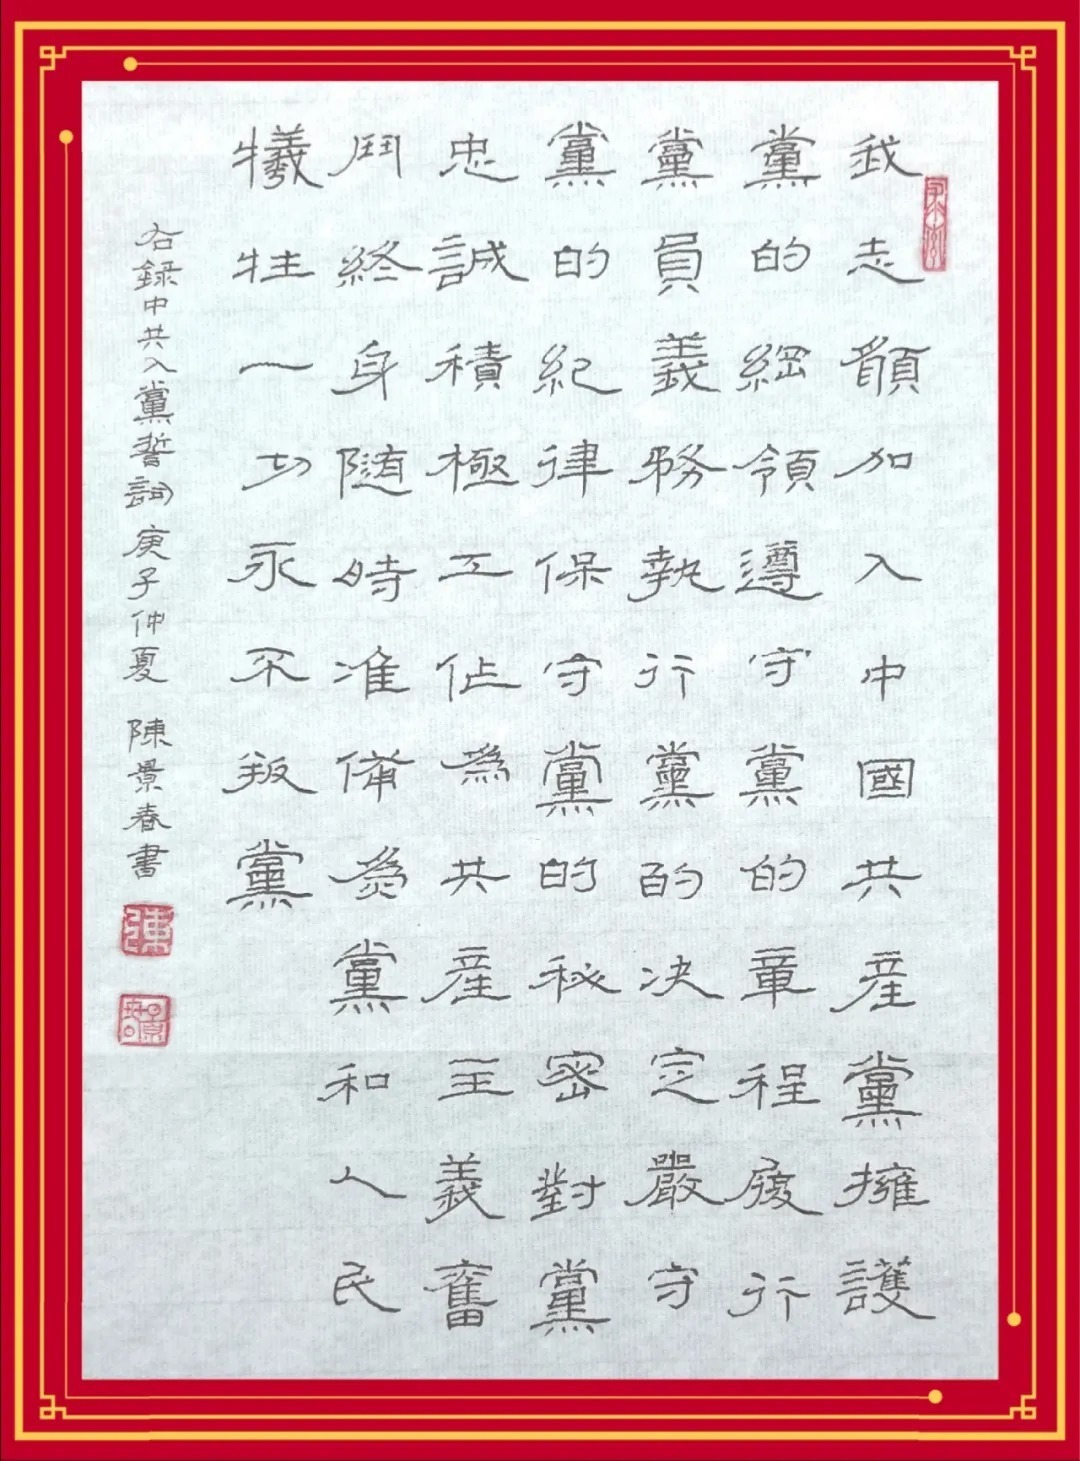 我志願加入中國共産黨擁護
黨的綱領遵守黨的章程履行
黨員義務執行黨的决定嚴守
黨的紀律保守黨的秘密對黨
忠誠積極工作為共産主義奮
鬥終身随時准備為黨和人民
犧牲一切永不叛黨
右録中共入黨誓詞庚子仲夏 陳景春書